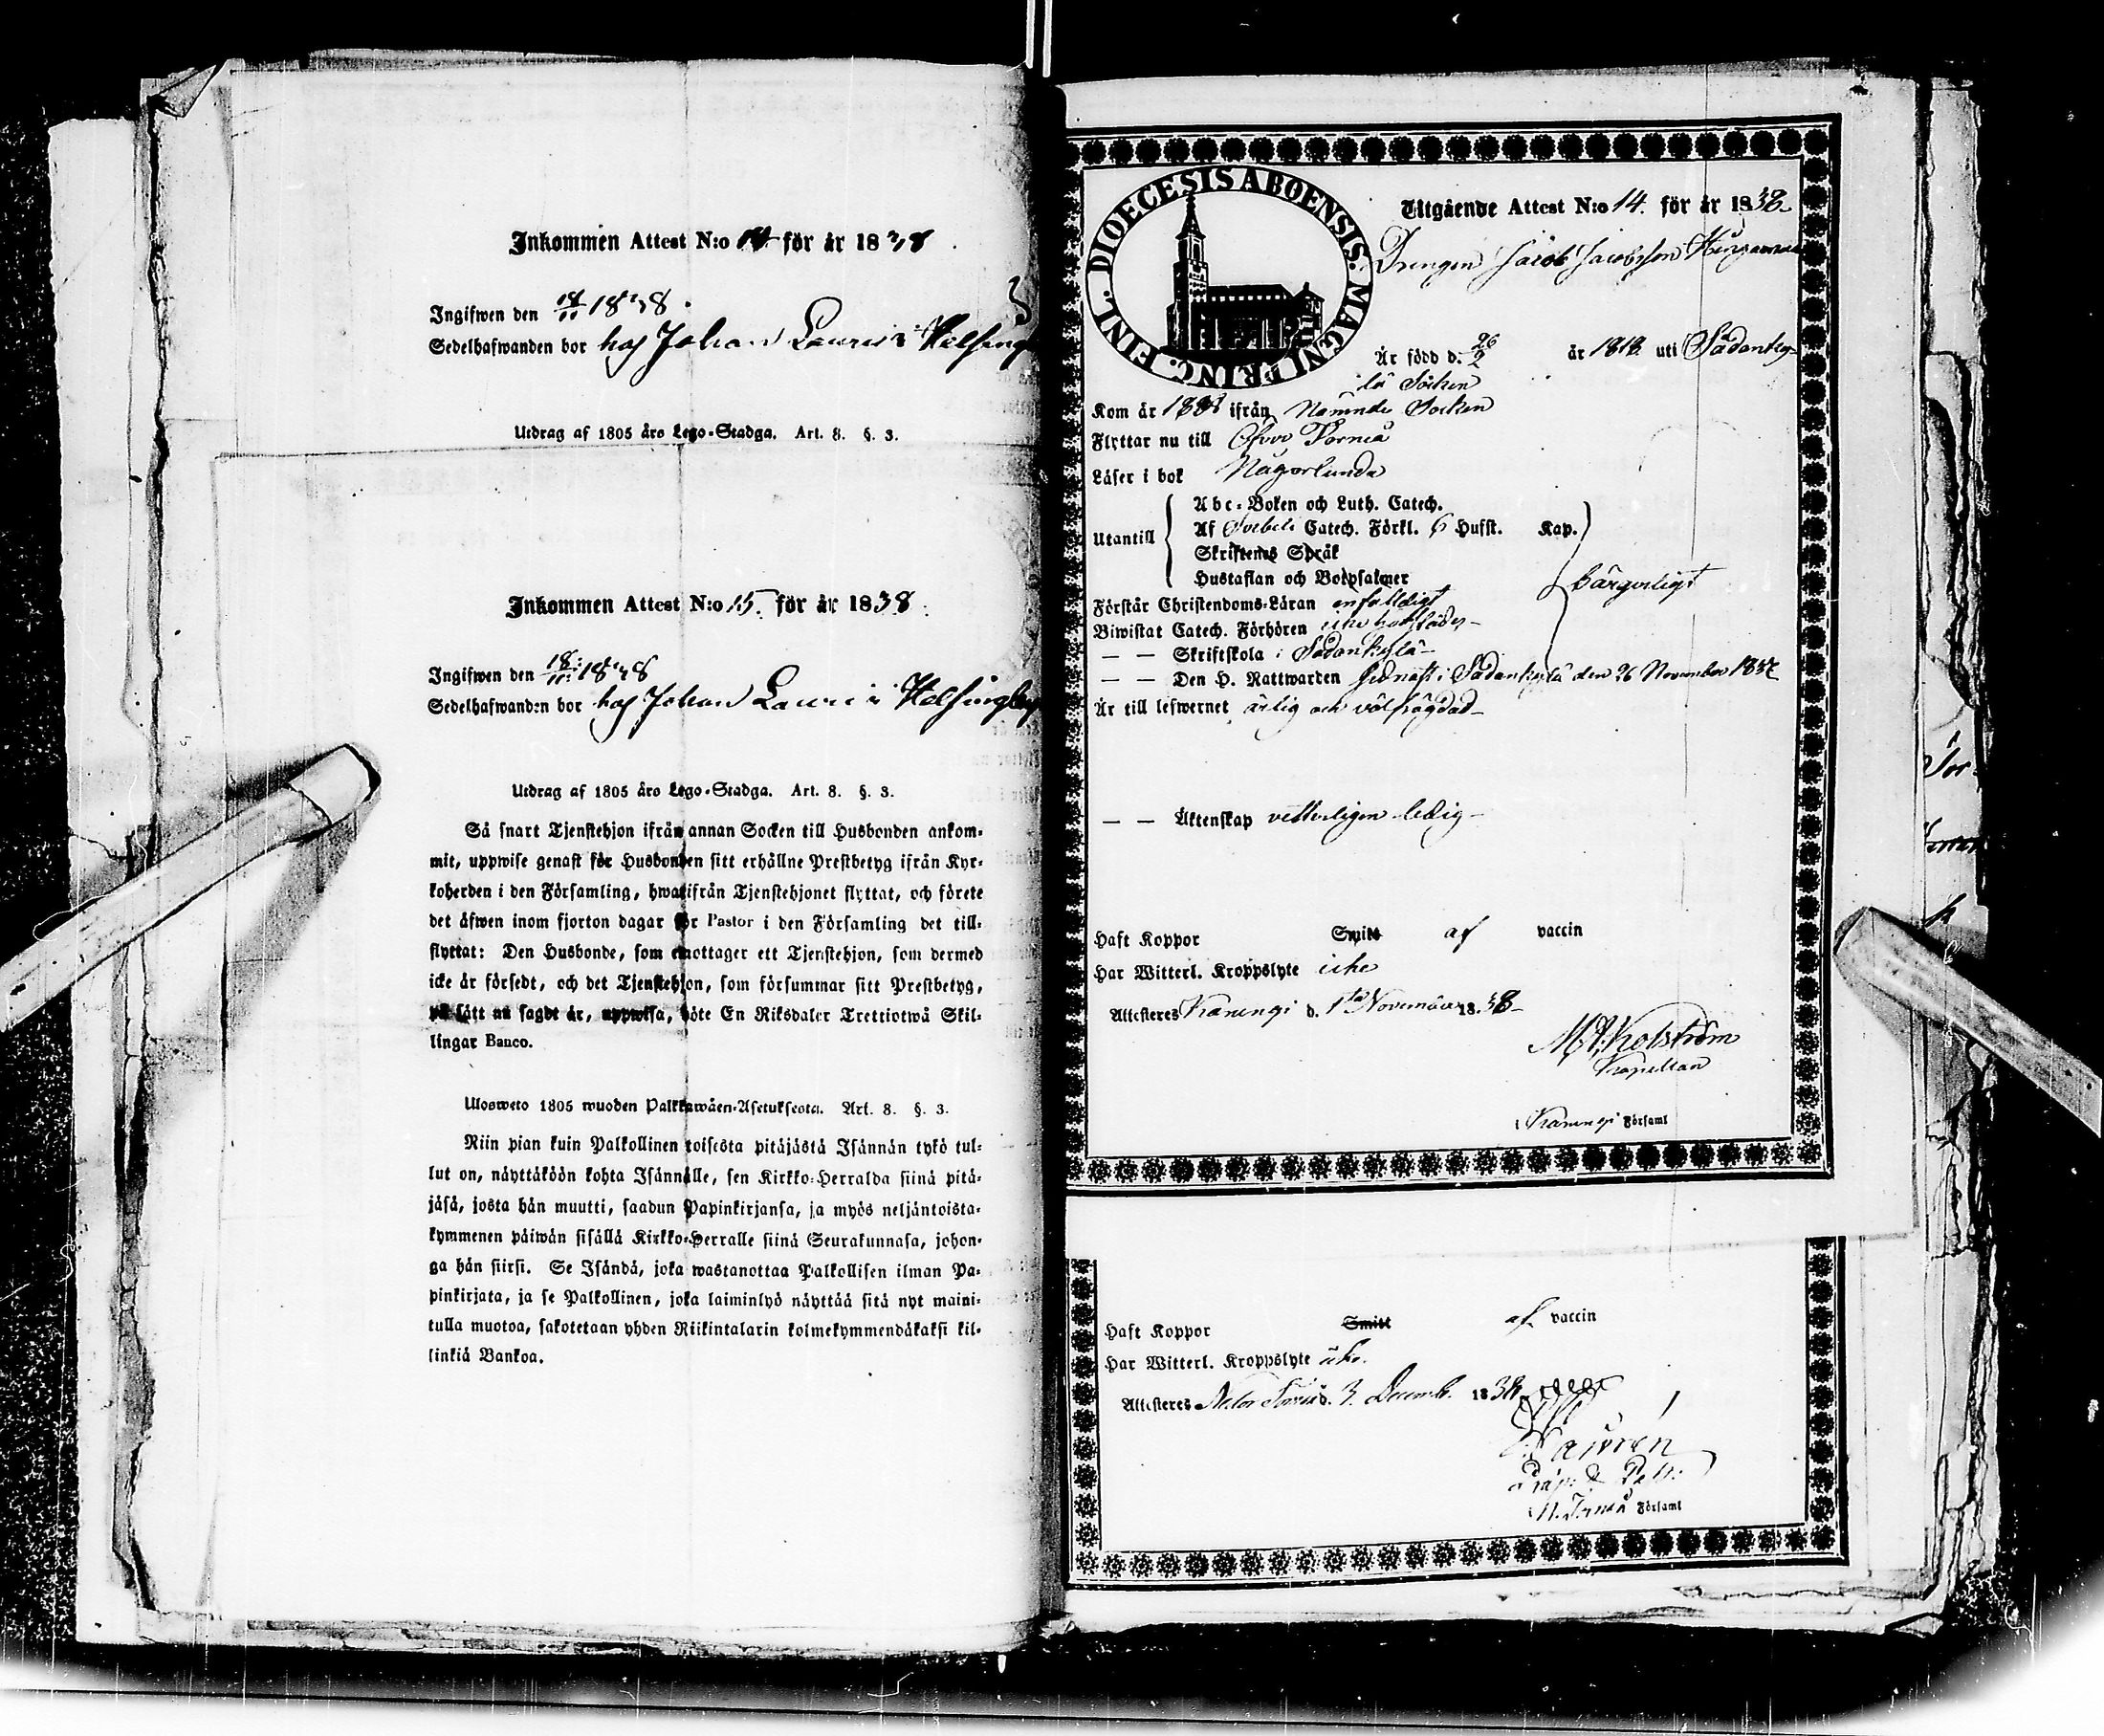 Inkommen Attest N:o 14 för år 1838
Ingifwen den 18/11 1838.
Sedelhafwanden bor hos Johan Lauri i Helsing
Utdrag af 1805 års Lego-Stadga. Art. 8. §. 3.
Inkommen Attest N:o 15. för år 1838.
Ingifwen den 18/11 1838
Sedelhafwanden bor hos Johan Lauri i Helsingby
Utdrag af 1805 års Lego-Stadga. Art. 8. §. 3.
Så snart Tjenstehjon ifrån annan Socken till Husbonden ankom-
mit, uppwise genast för Husbonden sitt erhållne Prestbetyg ifrån Kyr-
koherden i den Församling, hwarifrån Tjenstehjonet flyttat, och förete
det äfwen inom fjorton dagar för Pastor i den Församling det till-
flyttat: Den Husbonde, som emottager ett Tjenstehjon, som dermed
icke är försedt, och det Tjenstehjon, som försummar sitt Prestbetyg,
på sätt nu sagdt är, uppwisa, böte En Riksdaler Trettiotwå Skil-
lingar Banco.
Ulosweto 1805 wuoden Palkkawäen-Asetuksesta. Art. 8. §. 3.
Niin pian kuin Palkollinen toisesta pitäjästä Isännän tykö tul-
lut on, näyttäköön kohta Isännälle, sen Kirkko-Herralda siinä pitä-
jäsä, josta hän muutti, saadun Papinkirjansa, ja myös neljäntoista-
kymmenen päiwän sisällä Kirkko-Herralle siinä Seurakunnasa, johon-
ga hän siirsi. Se Isändä, joka wastanottaa Palkollisen ilman Pa-
pinkirjata, ja se Palkollinen, joka laiminlyö näyttää sitä nyt maini-
tulla muotoa, sakotetaan yhden Riikintalarin kolmekymmendäkaksi kil-
linkiä Bankoa.
DIOECESIS ABOENSIS. MAGNI PRINC. FINL.
Utgående Attest N:o 14. för år 1838
Drengen Jacob Jacobsson
Är född d. 26/2 år 1818 uti Sodanky-
lä Socken
Kom år ifrån Nämnde Socken
Flyttar nu till Öfver Torneå
Läser i bok Någorlunda
Utantill
Abc-Boken och Luth. Catech.
Af Svebeli Catech. Förkl. 6 Hufst. Kap.
Skriftenes Språk
Hustaflan och Botpsalmer
bärgeligt
Förstår Christendoms-Läran enfaldigt
Biwistat Catech. Förhören icke
— — Skriftskola i Sodankylä
— — Den H. Nattwarden sednast i Sodankylä den 26 November 1837
Är till lefwernet ärlig och välfrägdad
— — Äktenskap vetterligen ledig
Haft Koppor Smitt af vaccin
Har Witterl. Kroppslyte icke
Attesteres Karungi d. 1sta November 1838
Kapellan
Karungi Församl
Haft Koppor Smitt af vaccin
Har Witterl. Kroppslyte icke.
Attesteres Neder Torneå d. 3. Decemb. 1838
N. Torneå Församl